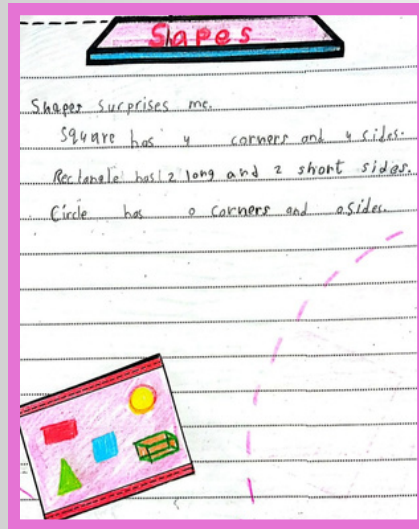 Sapes
Shapes surprises me.
Square has 4 corners and 4 sides.
Rectangle has 2 long and 2 short sides.
Circle has 0 corners and 0 sides.